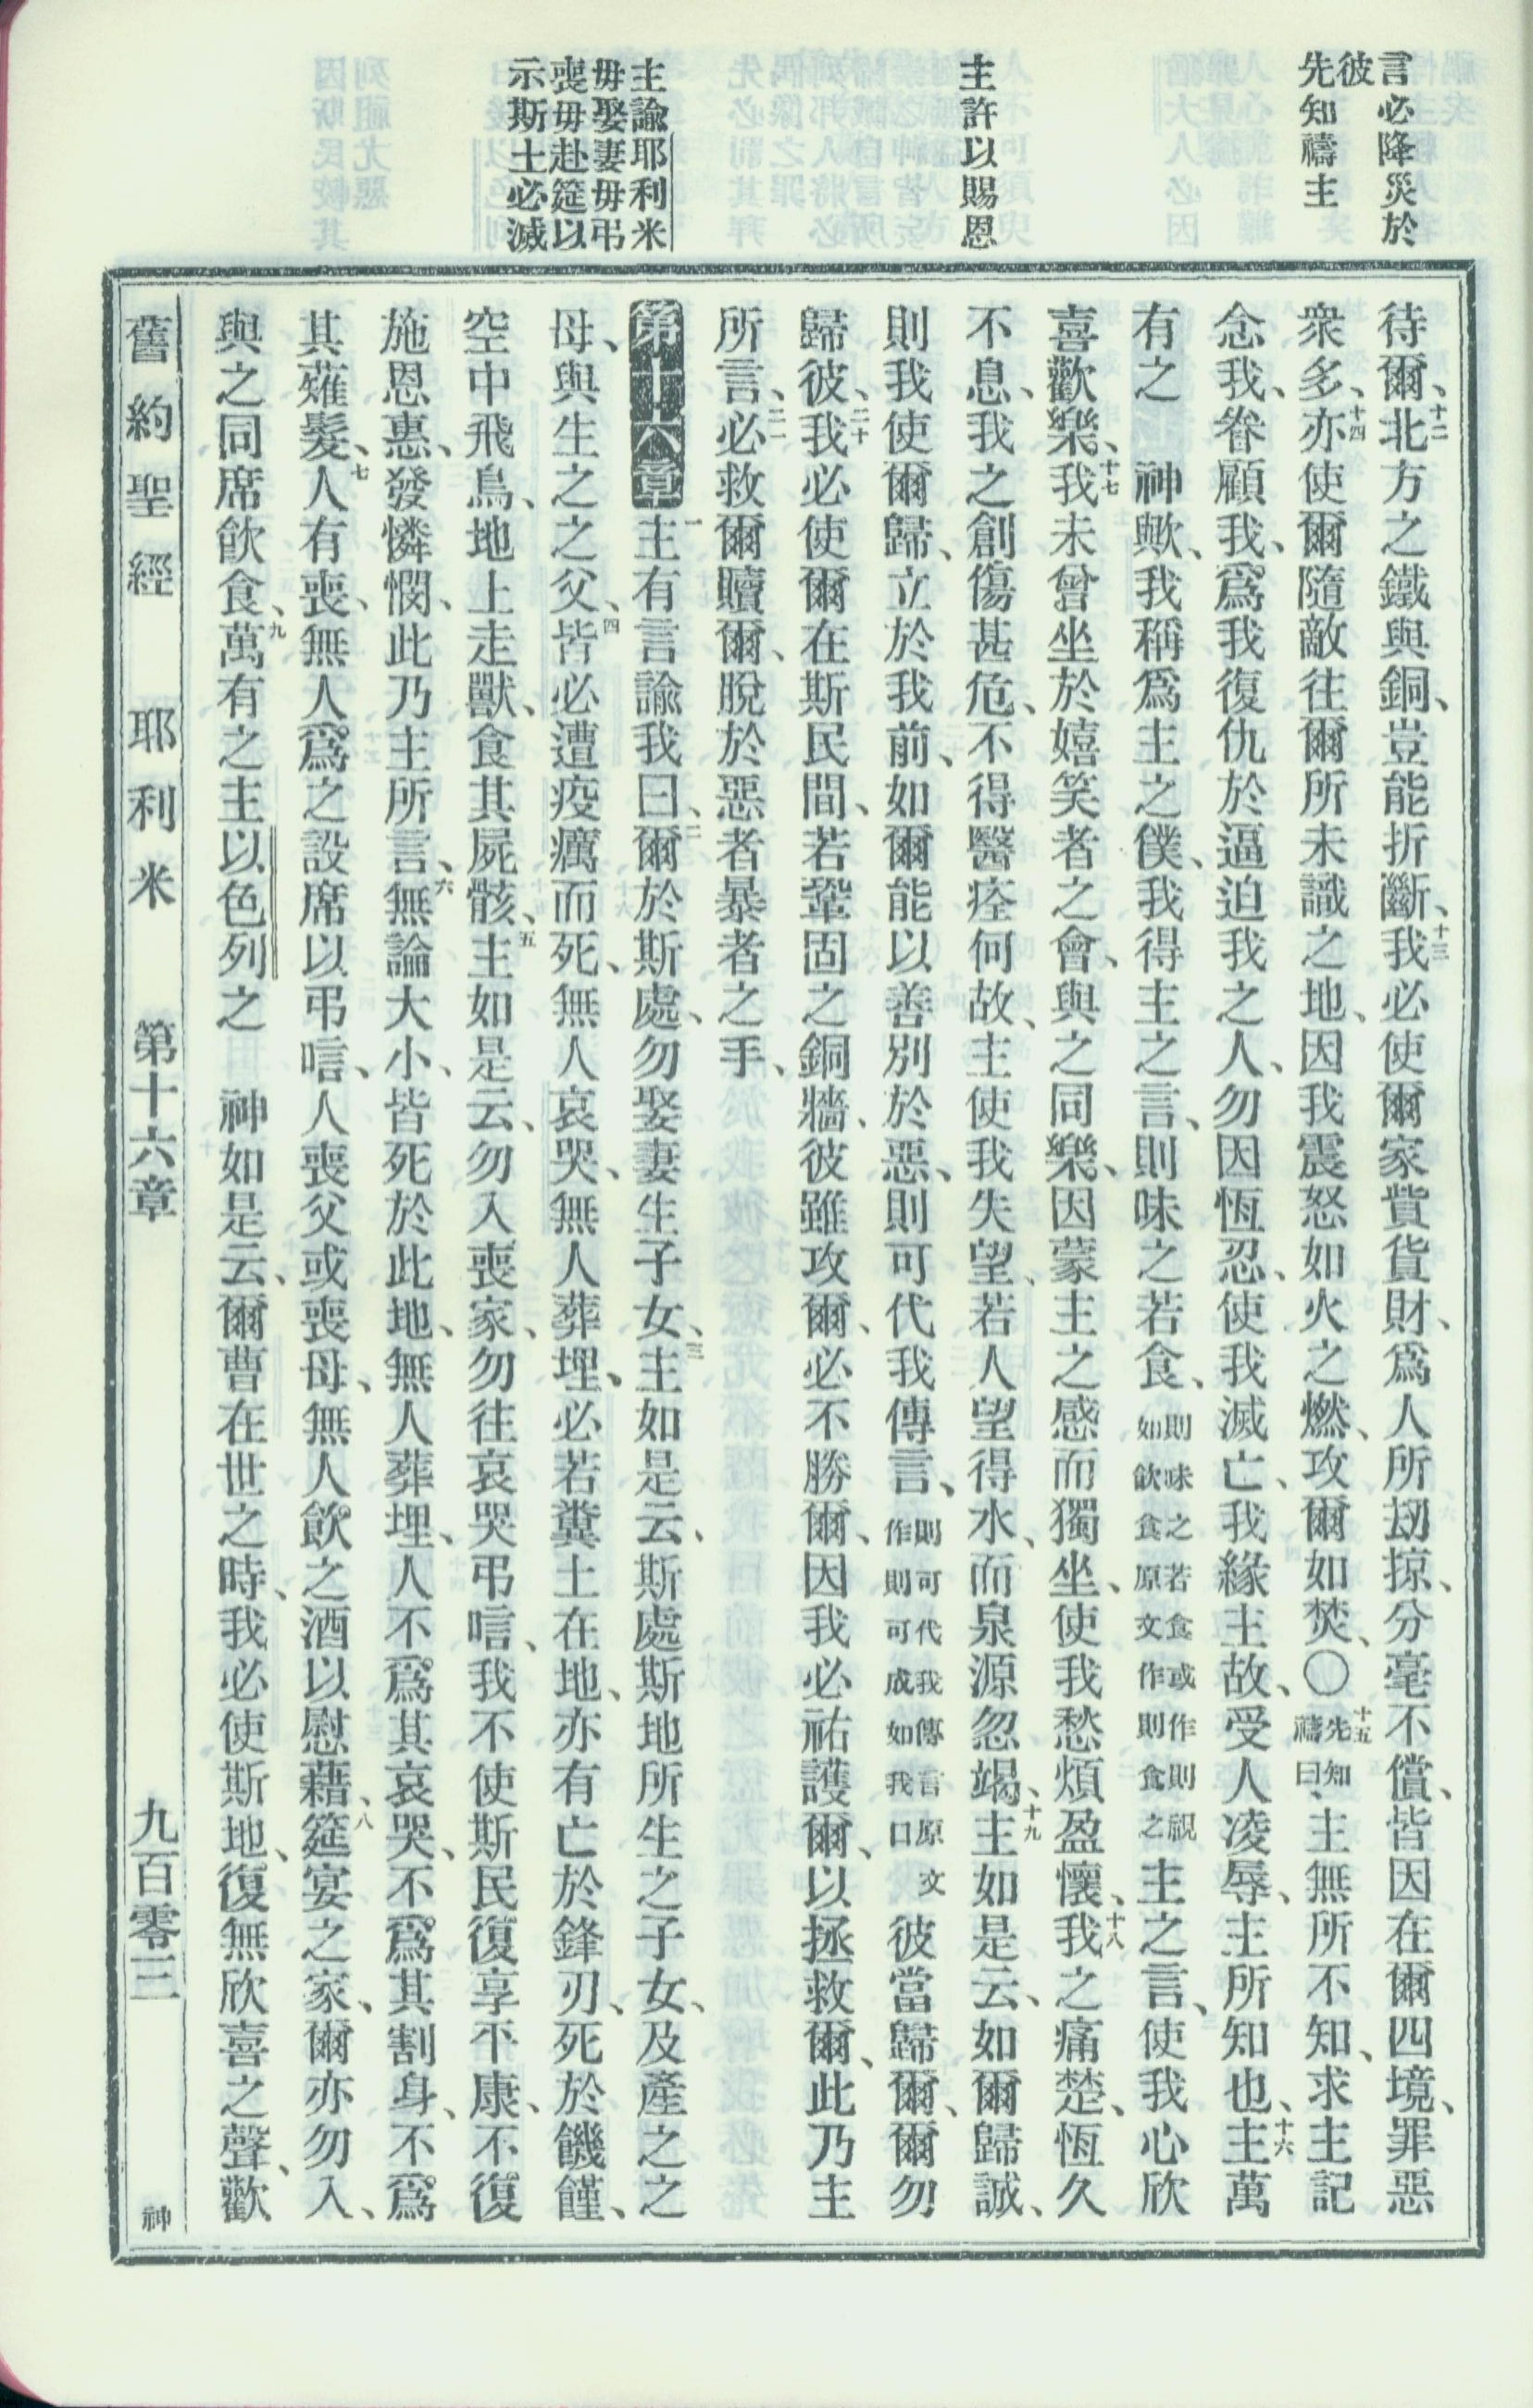 言必降災於
彼
先知禱主
主許以賜恩
主諭耶利米
毋娶妻毋弔
喪毋赴筵以
示斯土必滅
待爾、十二北方之鐵與銅、豈能折斷、十三我必使爾家貲貨財、爲人所刼掠、分毫不償、皆因在爾四境、罪惡
衆多、十四亦使爾隨敵往爾所未識之地、因我震怒如火之燃、攻爾如焚、〇十五先知禱曰、主無所不知、求主記
念我、眷顧我、爲我復仇於逼迫我之人、勿因恆忍、使我滅亡、我緣主故、受人凌辱、主所知也、十六主萬
有之　神歟、我稱爲主之僕、我得主之言、則味之若食、則味之若食或作則視如飲食原文作則食之主之言、使我心欣
喜歡樂、十七我未曾坐於嬉笑者之會、與之同樂、因蒙主之感而獨坐、使我愁煩盈懷、十八我之痛楚、恆久
不息、我之創傷甚危、不得醫痊何故、主使我失望、若人望得水、而泉源忽竭、十九主如是云、如爾歸誠、
則我使爾歸、立於我前、如爾能以善別於惡、則可代我傳言、則可代我傳言原文作則可成如我口彼當歸爾、爾勿
歸彼、二十我必使爾在斯民間、若鞏固之銅牆、彼雖攻爾、必不勝爾、因我必祐護爾、以拯救爾、此乃主
所言、二一必救爾贖爾、脫於惡者暴者之手、
第十六章一主有言諭我曰、二爾於斯處、勿娶妻生子女、三主如是云、斯處斯地所生之子女、及產之之
母、與生之之父、四皆必遭疫癘而死、無人哀哭、無人葬埋、必若糞土在地、亦有亡於鋒刃、死於饑饉、
空中飛鳥、地上走獸、食其屍骸、五主如是云、勿入喪家、勿往哀哭弔唁、我不使斯民復享平康、不復
施恩惠、發憐憫、此乃主所言、六無論大小、皆死於此地、無人葬埋、人不爲其哀哭、不爲其割身、不爲
其薙髮、七人有喪、無人爲之設席以弔唁、人喪父或喪母、無人飲之酒以慰藉、八筵宴之家、爾亦勿入、
與之同席飲食、九萬有之主以色列之　神如是云、爾曹在世之時、我必使斯地、復無欣喜之聲、歡
舊約聖經　耶利米　第十六章　九百零三　神